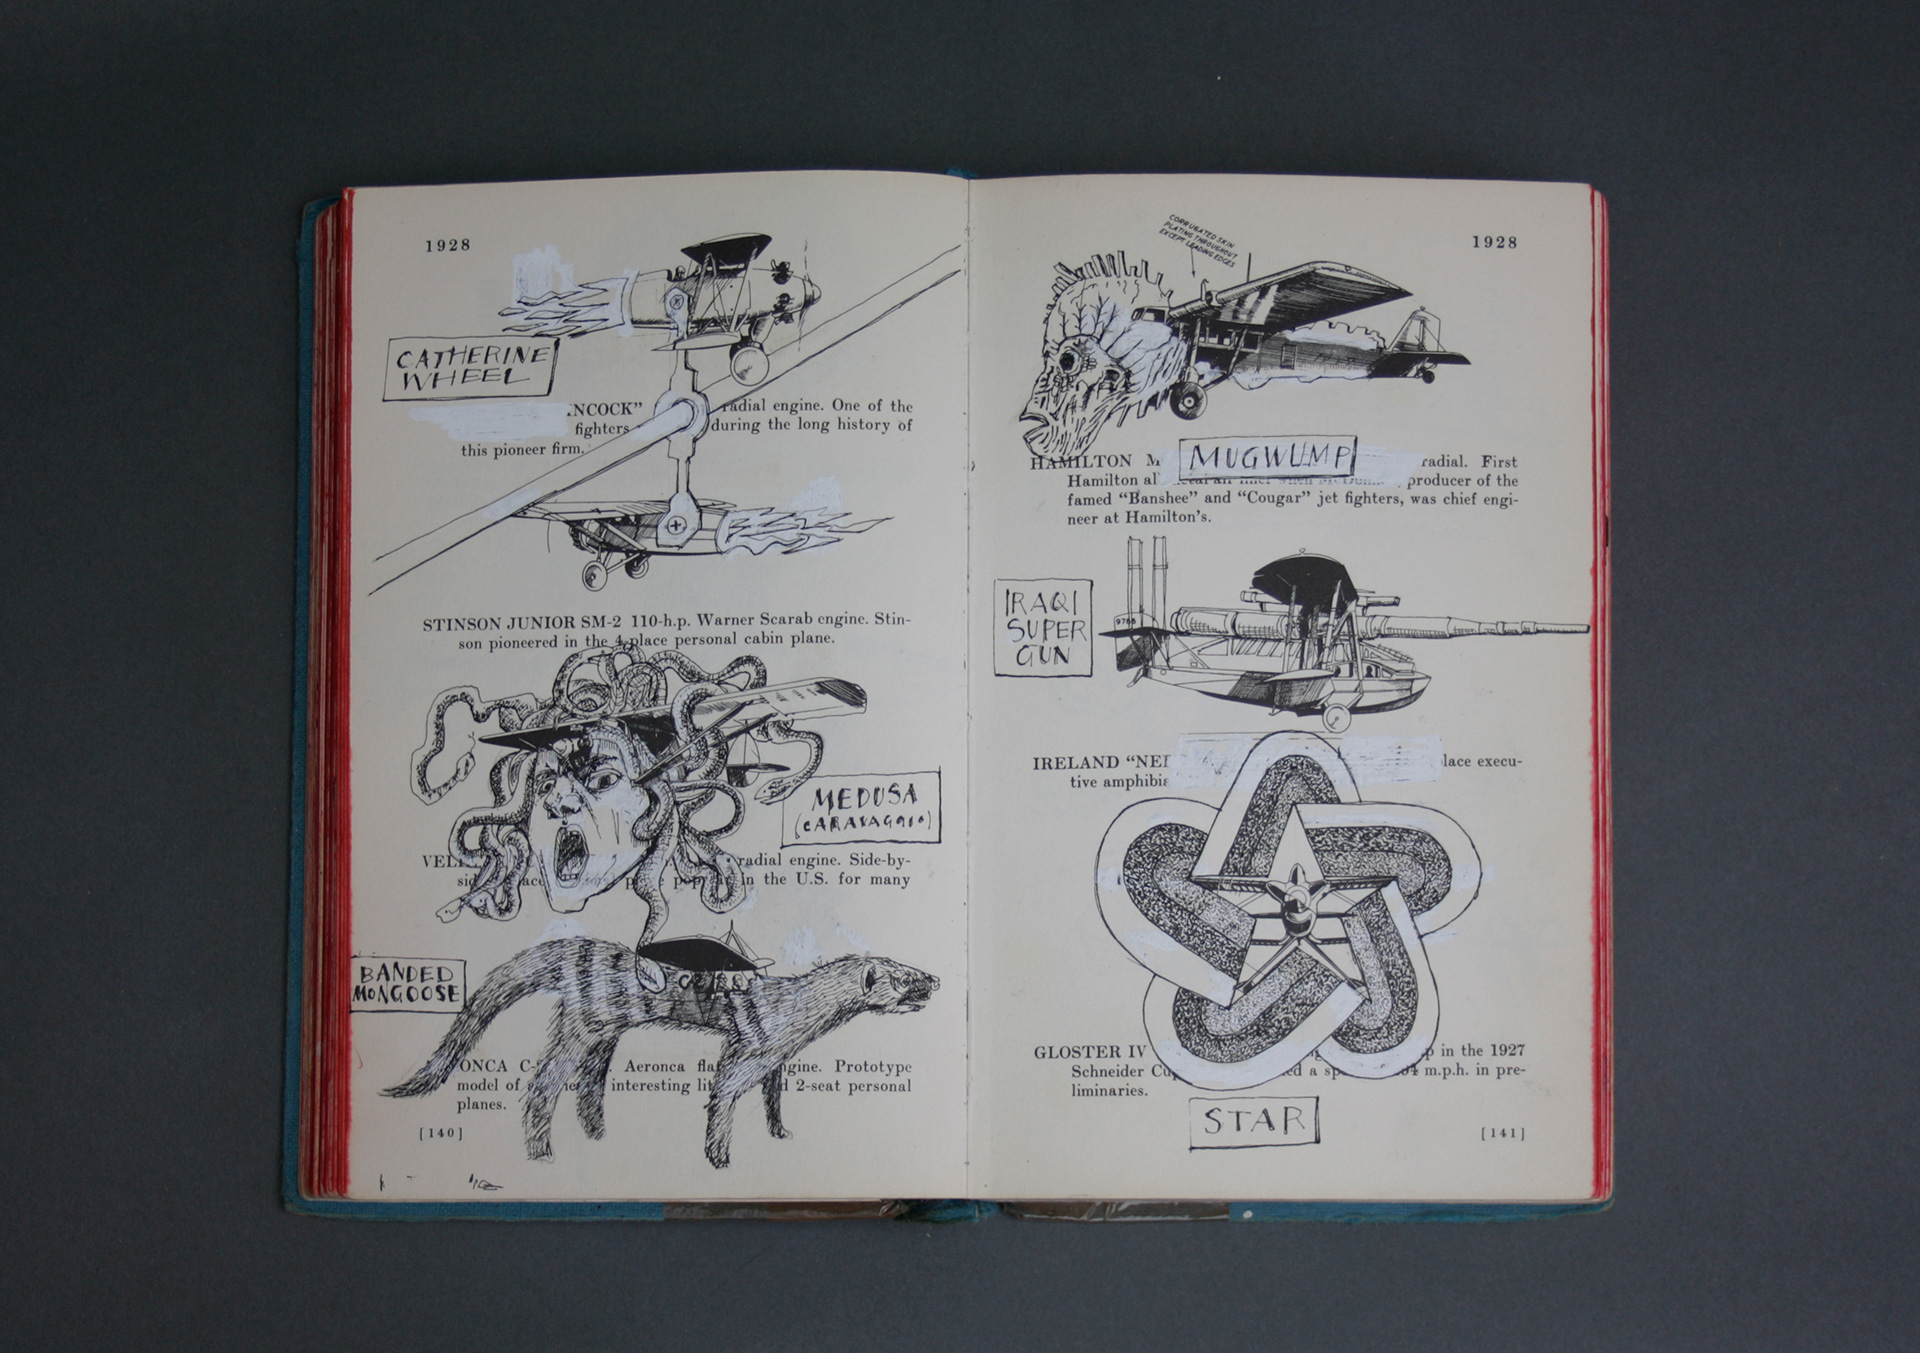 1928
CATHERINE
WHEEL
NCOCK" radial engine. One of the
fighters during the long history of
this pioneer firm.
STINSON JUNIOR SM-2 110-h.p. Warner Scarab engine. Stin-
son pioneered in the 4-place personal cabin plane.
MEDUSA
(CARAVAGGIO)
VEL radial engine. Side-by-
in the U.S. for many
BANDED
MONGOOSE
ONCA C- Aeronca engine. Prototype
model of interesting 2-seat personal
planes.
[140]
1928
CORRUGATED SKIN
PLATING THROUGHOUT
EXCEPT LEADING EDGES
MUGWUMP
HAMILTON M radial. First
Hamilton producer of the
famed "Banshee" and "Cougar" jet fighters, was chief engi-
neer at Hamilton's.
IRAQI
SUPER
GUN
9768
IRELAND "NE place execu-
tive amphibia
GLOSTER IV in the 1927
Schneider Cup m.p.h. in pre-
liminaries.
STAR
[141]